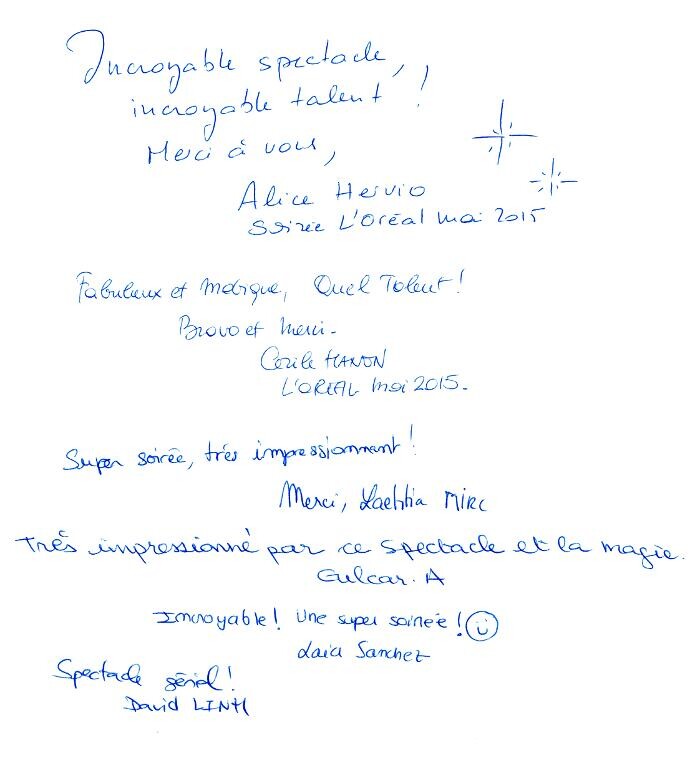 Incroyable spectacle,
incroyable talent !
Merci à vous,
Alice Hervio
Soirée L'Oréal mai 2015
Fabuleux et magique, Quel Talent !
Bravo et merci.
Cecile HANON
L'OREAL mai 2015.
Super soirée, très impressionnant !
Merci, Laetitia MIRC
Très impressionné par ce spectacle et la magie.
Gulcar. A
Incroyable ! Une super soirée !
Laia Sanchez
Spectacle génial !
David